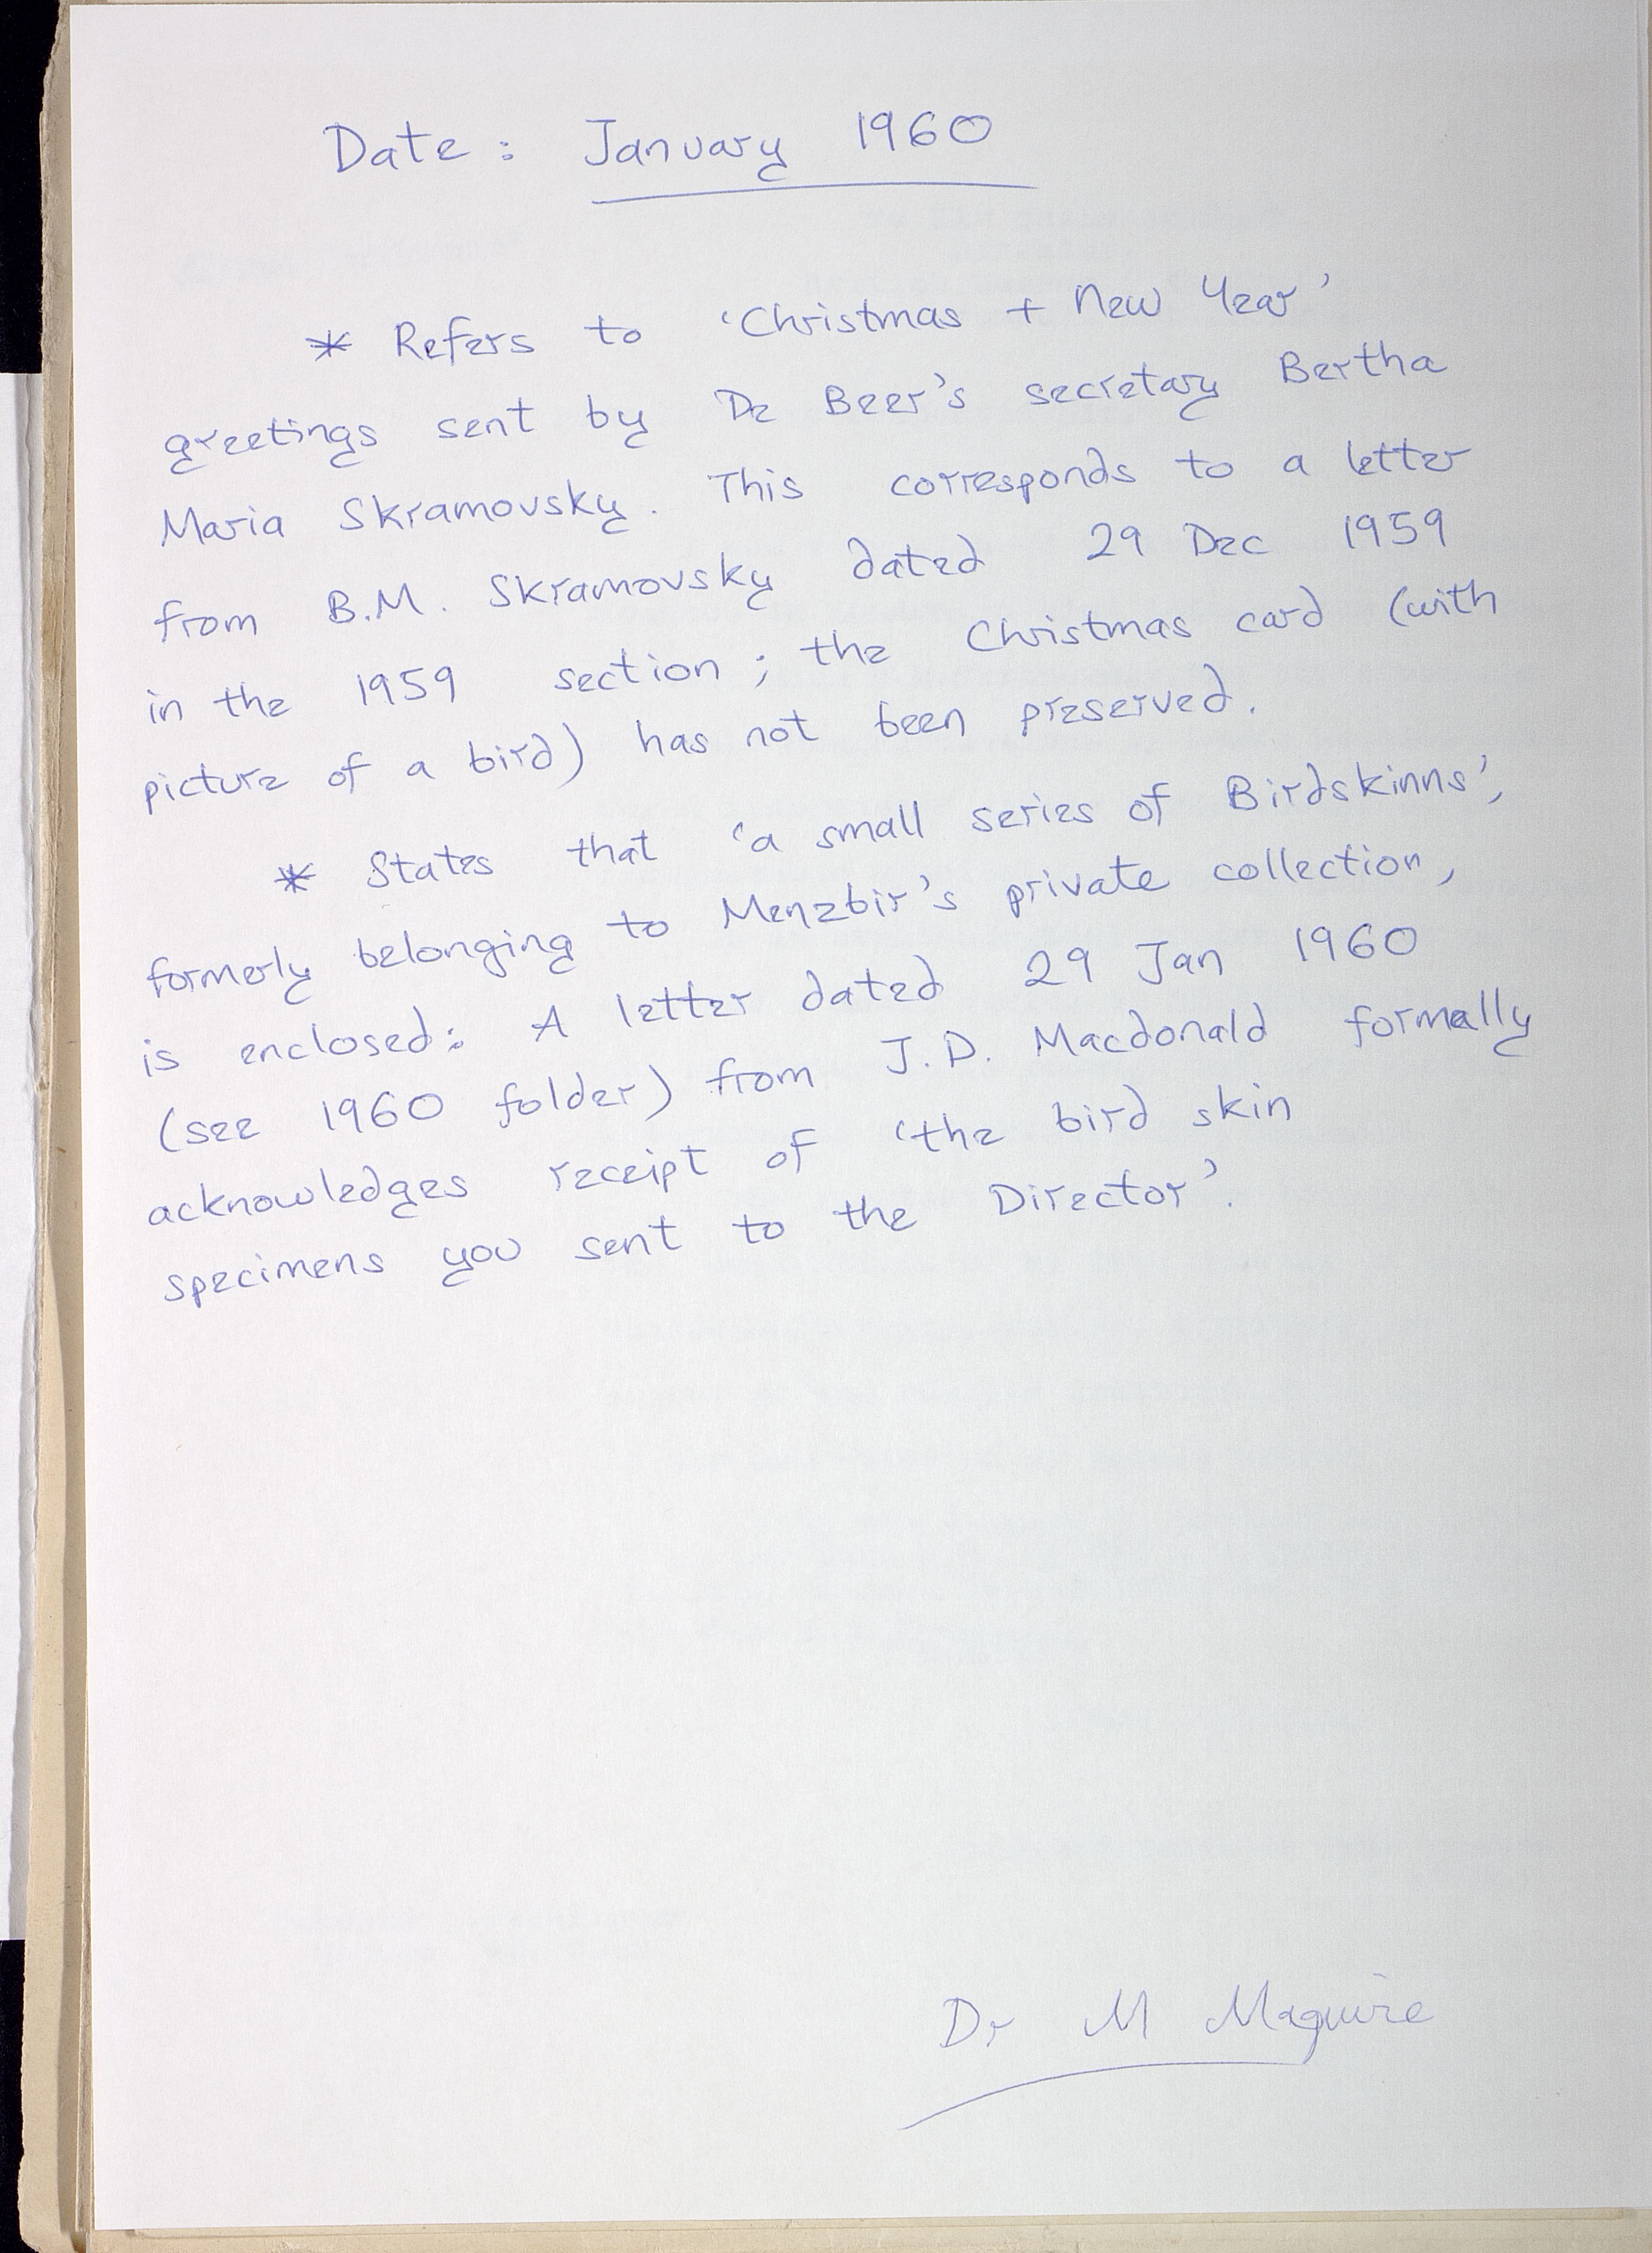 Date : January 1960
* Refers to 'Christmas + New Year'
greetings sent by De Beer's secretary Bertha
Maria Skramovsky. This corresponds to a letter
from B.M. Skramovsky dated 29 Dec 1959
in the 1959 section ; the Christmas card (with
picture of a bird) has not been preserved.
* States that 'a small series of Birdskinns',
formerly belonging to Menzbir's private collection,
is enclosed: A letter dated 29 Jan 1960
(see 1960 folder) from J.D. Macdonald formally
acknowledges receipt of 'the bird skin
specimens you sent to the Director'.
Dr M Maguire